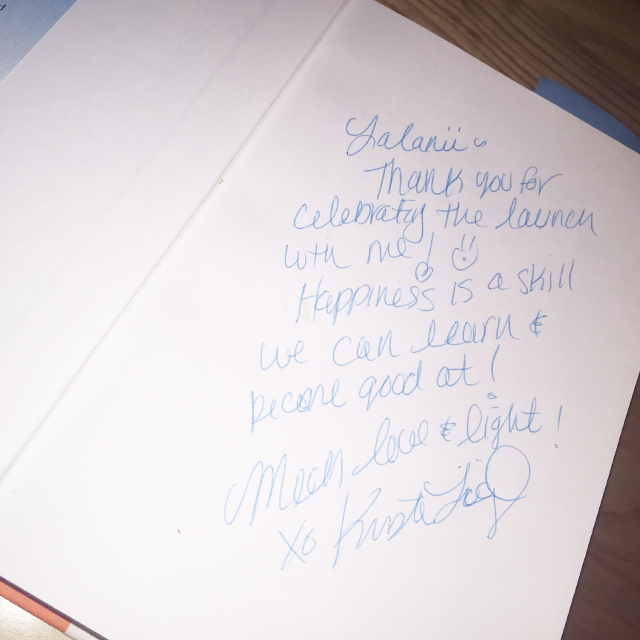 Lalanii
Thank you for
celebratg the launch
with me!
Happiness is a skill
we can learn &
become good at!
Much love & light!
xo Krista